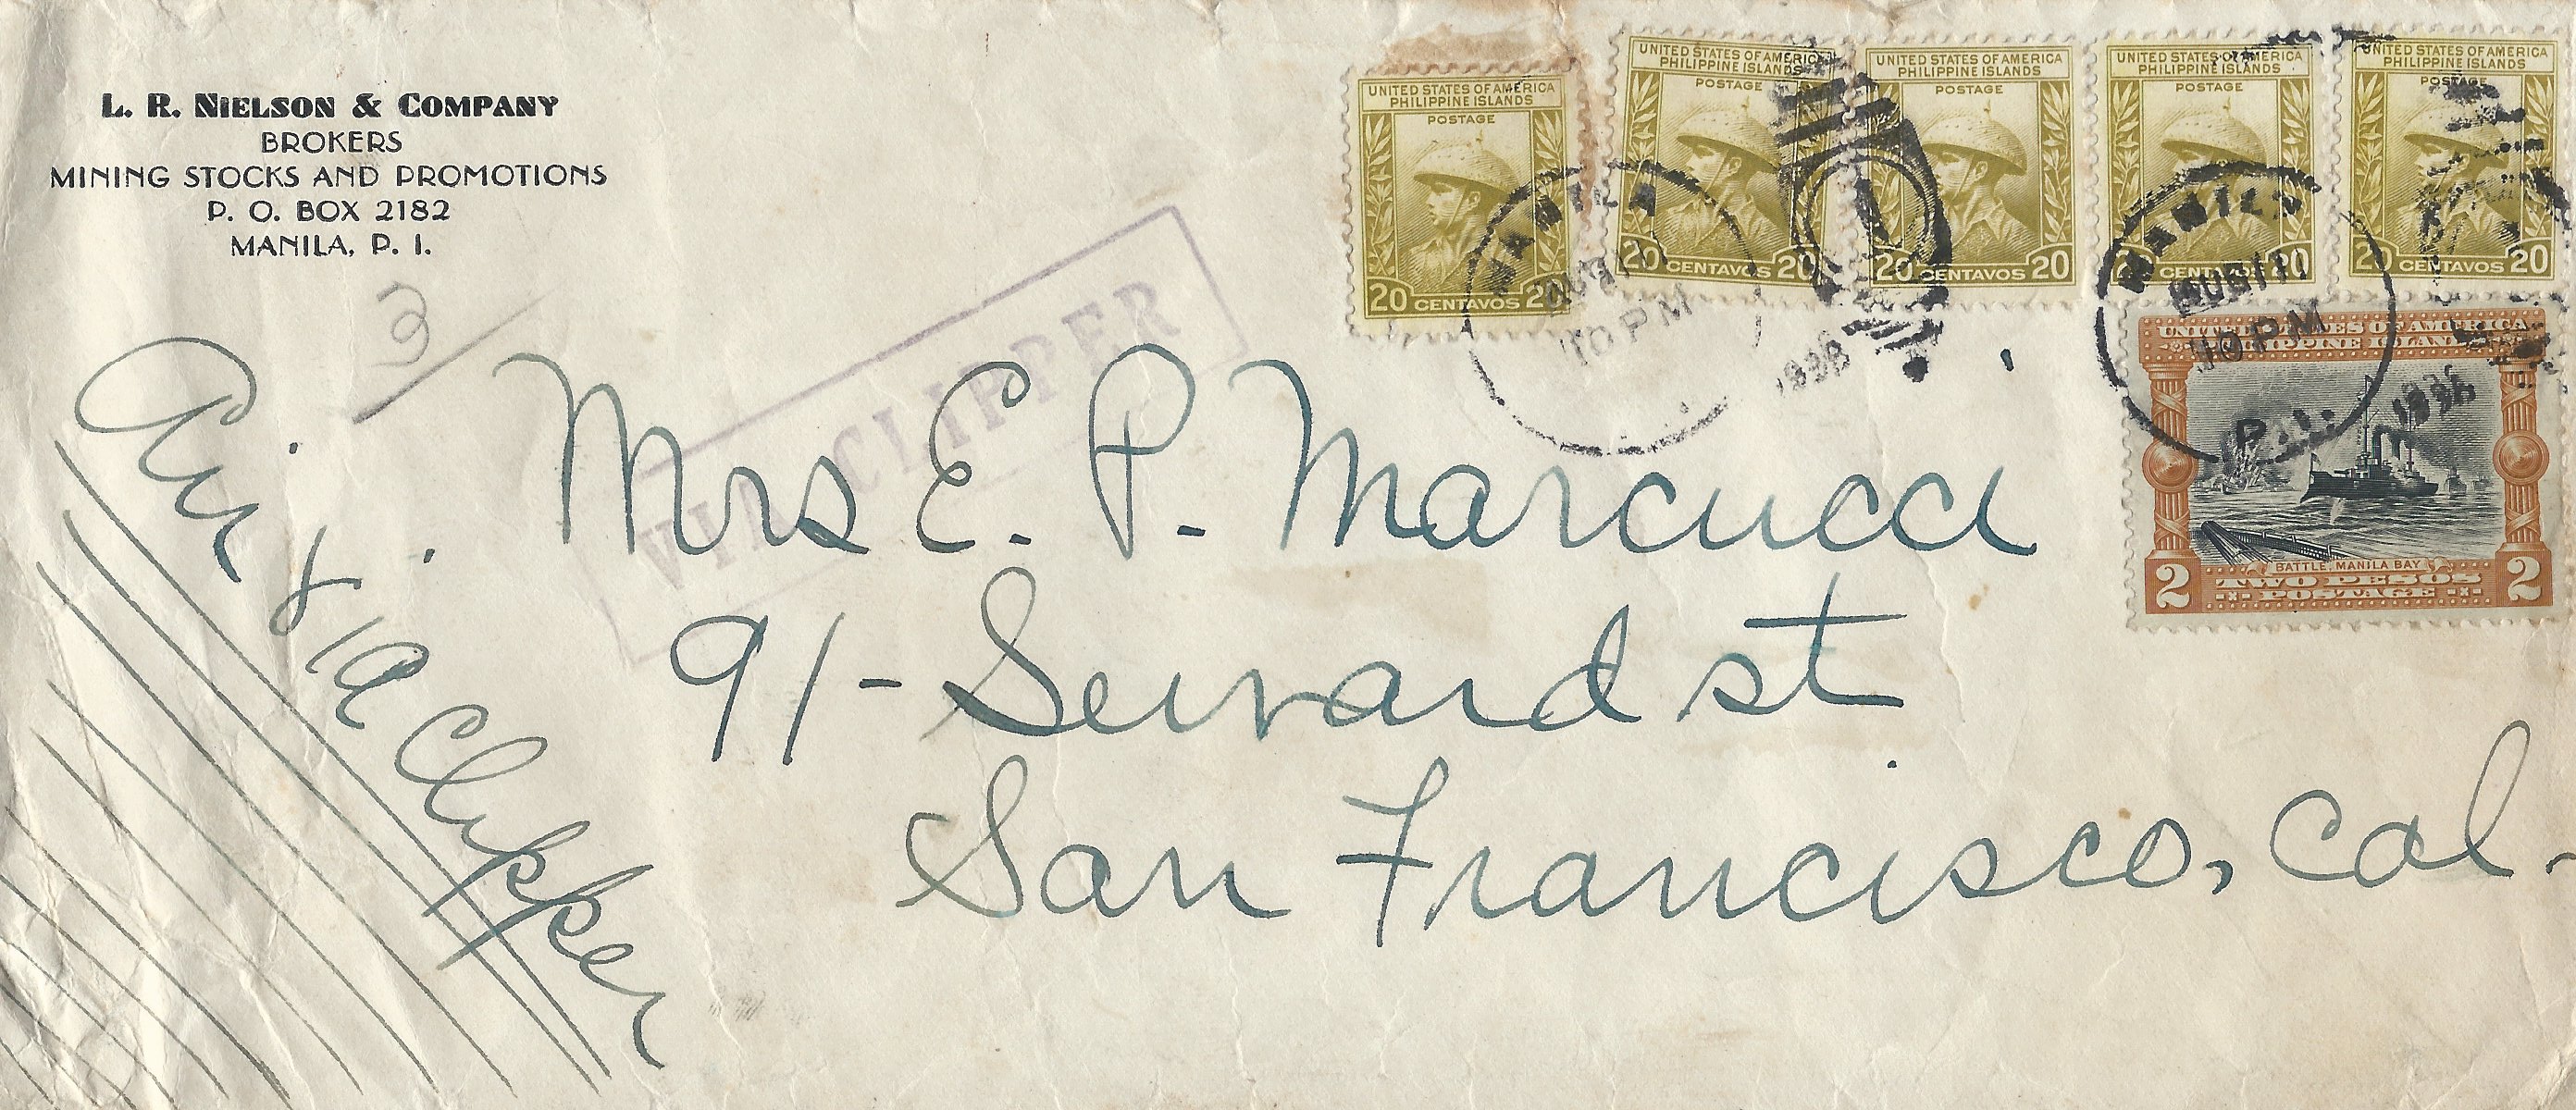 L. R. NIELSON & COMPANY
BROKERS
MINING STOCKS AND PROMOTIONS
P. O. BOX 2182
MANILA, P. I.
3
Air Via Clipper
VIA CLIPPER
Mrs E. P. Marcucci
91 - Seward st
San Francisco, Cal.
UNITED STATES OF AMERICA
PHILIPPINE ISLANDS
POSTAGE
20 CENTAVOS 20
UNITED STATES OF AMERICA
PHILIPPINE ISLANDS
POSTAGE
20 CENTAVOS 20
UNITED STATES OF AMERICA
PHILIPPINE ISLANDS
POSTAGE
20 CENTAVOS 20
UNITED STATES OF AMERICA
PHILIPPINE ISLANDS
POSTAGE
20 CENTAVOS 20
UNITED STATES OF AMERICA
PHILIPPINE ISLANDS
POSTAGE
20 CENTAVOS 20
MANILA
10 PM
1936
MANILA
10 PM
P. I.
1936
UNITED STATES OF AMERICA
PHILIPPINE ISLANDS
BATTLE, MANILA BAY
2 TWO PESOS 2
POSTAGE